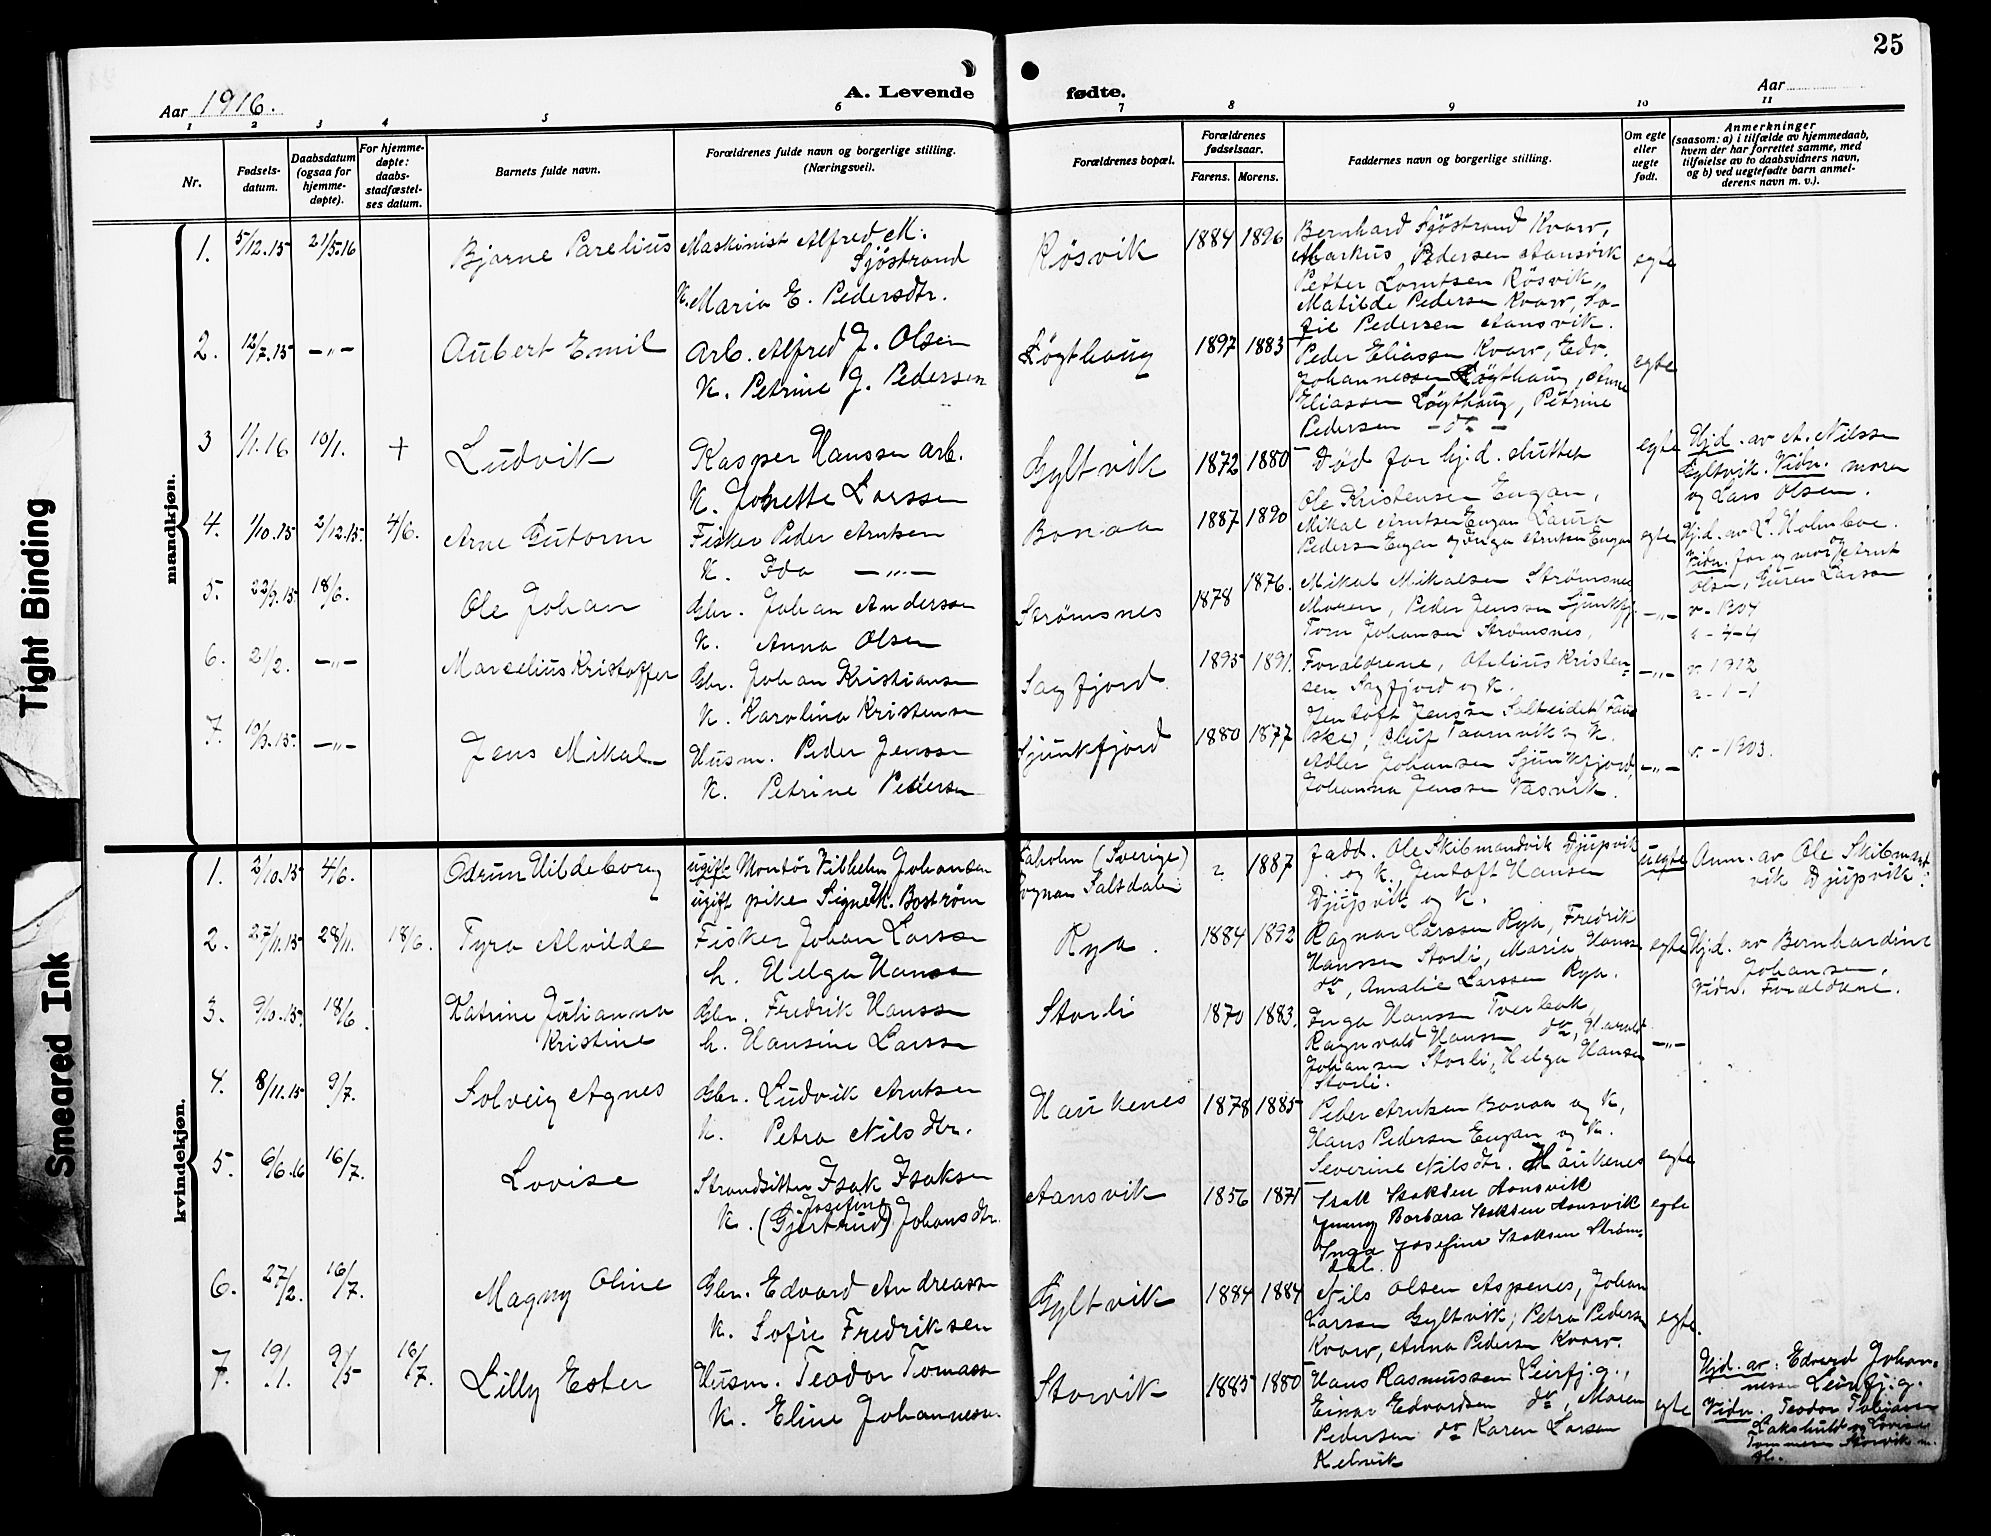 25
Aar 1916.
A. Levende fødte.
Aar
1 2 3 4 5 6 7 8 9 10 11
Nr.
Fødsels-
datum.
Daabsdatum
(ogsaa for
hjemme-
døpte).
For hjemme-
døpte:
daabs-
stadfæstel-
ses datum.
Barnets fulde navn.
Forældrenes fulde navn og borgerlige stilling.
(Næringsvei).
Forældrenes bopæl.
Forældrenes
fødselsaar.
Farens. Morens.
Faddernes navn og borgerlige stilling.
Om egte
eller
uegte
født.
Anmerkninger
(saasom: a) i tilfælde av hjemmedaab,
hvem der har forrettet samme, med
tilføielse av to daabsvidners navn,
og b) ved uegtefødte barn anmel-
derens navn m. v.).
mandkjøn.
1. 5/12.15 21/5.16 Bjarne Parelius
Maskinist Alfred M.
Sjöstrand
K. Maria E. Pedersdtr.
Røsvik 1884 1896
Bernhard Sjöstrand Kvarv,
Markus Pedersen Aansvik
Petter Lorntsen Røsvik,
Matilde Pedersen Kvarv, So-
fie Pedersen Aansvik.
egte
2. 12/7.15 -"- Aubert Emil
Arb. Alfred J. Olsen
K. Petrine J. Pedersen
Løgthaug 1897 1883
Peder Eliassen Kvarv, Edv.
Johannessen Løgthaug, Anne
Eliassen Løgthaug, Petrine
Pedersen - do -
egte
3 1/1.16 10/1. + Ludvik
Kasper Hanssen arb.
K. Jonette Larssen
Gyltvik 1872 1880
Død før hj.d. sluttet
egte
Hjd. av A. Nilssen
Gyltvik. Vidn. moren
og Lars Olsen.
4. 1/10.15 2/12.15. 4/6. Arne Gutorm
Fisker Peder Arntsen
K. Ida -"-
Bonaa 1887 1890
Ole Kristensen Engan,
Mikal Arntsen Engan Laura
Pedersen Engan og Inga Arntsen Engan
egte
Hj.d. av L. Holmboe.
Vidn. far og mor og Petrut
Olsen, Guren Larsen
5. 23/9.15. 18/6. Ole Johan
Gbr. Johan Anderssen
K. Anna Olsen
Strømsnes 1878 1876.
Mikal Mikalsen Strømsnes,
Moren, Peder Jenssen Sjunkfj.
Tom Johansen Strømsnes,
-"-
v. 1904
6. 2/2. -"- Marselius Kristoffer
Gbr. Johan Kristiansen
K. Karolina Kristensen
Sagfjord. 1895 1891.
Forældrene, Otelius Kristen-
sen Sagfjord og K.
-"-
v. 1912
7. 10/3.15. -"- Jens Mikal
Husm. Peder Jenssen
K. Petrine Pedersen
Sjunkfjord 1880 1877
Jentoft Jenssen Salteidet (Fau-
ske), Oluf Taarnvik og K.
Adler Johansen Sjunkfjord,
Johanna Jenssen Vasvik.
-"-
v. - 1903.
kvindekjøn.
1. 2/10.15 4/6. Odrun Hildeborg
ugift Montör Vilhelm Johansen
ugift pike Signe K. Boström
Laholm (Sverige)
Rognan Saltdalen
? 1887
Fadd. Ole Skibmandvik Djupvik
og K. Jentoft Hansen
Djupvik og K.
uegte
Anm. av Ole Skibmand-
vik Djupvik.
2. 27/11.15 28/11. 18/6. Tyra Alvilde
Fisker Johan Larssen
h. Helga Hansen
Rya. 1884 1892
Ragnar Larssen Rya, Fredrik
Hanssen Storli, Maria Hanss.
do, Amalie Larssen Rya.
egte
Hjd. av Bernhardine
Johansen,
Vidn. Forældrene.
3. 9/10.15. 18/6. Katrine Julianna
Kristine
Gbr. Fredrik Hanssen
h. Hansine Larssen
Storli 1870 1883.
Inga Hanssen Tverbak,
Ragnvald Hansen do, Harald
Johansen Storli, Helga Hansen
Storli.
-"-
4. 8/11.15 9/7. Solveig Agnes
Gbr. Ludvik Arntsen
K. Petra Nilsdtr.
Haukenes 1878 1885
Peder Arntsen Bonaa og K,
Hans Pedersen Engan og K.
Severine Nilsdtr. Haukenes
egte
5. 6/6.16 16/7. Lovise
Strandsitter Isak Isaksen
Josefine
K. (Gjertrud) Johansdtr.
Aansvik 1856 1871
Isak Isaksen Aansvik
Jenny Barbara Isaksen Aansvik
Inga Josefine Isaksen Strøm-
dal.
egte
6. 27/2. 16/7. Magny Oline
Gbr. Edvard Andreassen
K. Sofie Fredriksen
Gyltvik 1884 1884
Nils Olsen Aspenes, Johan
Larssen Gyltvik, Petra Pedersen
Kvarv, Anna Pedersen Kvarv.
egte.
7. 19/1. 9/5 16/7. Lilly Ester
Husm. Teodor Tomassen
K. Eline Johannessen.
Storvik 1885 1880
Hans Rasmussen Leirfj.g.,
Einar Edvardsen do, Maren
Pedersen do Karen Larsen
Kelvik
egte
Hjd. av: Edvard Johan-
nesen Leirfj.g.
Vidn. Teodor Tobiassen
Lakshuld og Lovise
Tommesen Storvik m.
fl.
Tight Binding
Smeared Ink